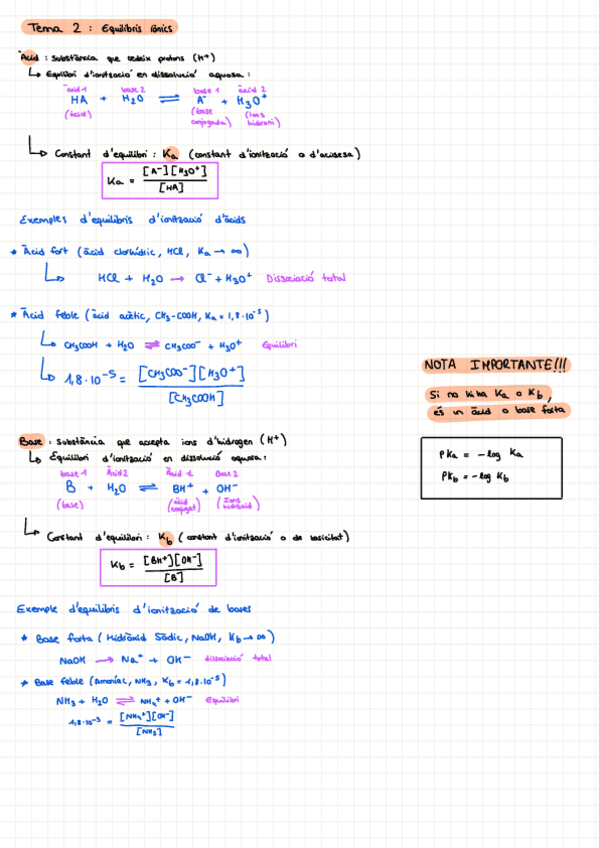 Tema 2 : Equilibris iònics
Àcid : substància que cedeix protons (H⁺)
↳ Equilibri d'ionització en dissolució aquosa :
àcid 1 base 2 base 1 àcid 2
HA + H₂O ⇌ A⁻ + H₃O⁺
(àcid) (base conjugada) (ions hidroni)
↳ Constant d'equilibri : Ka (constant d'ionització o d'acidesa)
Ka = [A⁻][H₃O⁺] / [HA]
Exemples d'equilibris d'ionització d'àcids
* Àcid fort (àcid clorhídric, HCl, Ka → ∞)
↳ HCl + H₂O → Cl⁻ + H₃O⁺ Dissociació total
* Àcid feble (àcid acètic, CH₃-COOH, Ka = 1,8·10⁻⁵)
↳ CH₃COOH + H₂O ⇌ CH₃COO⁻ + H₃O⁺ Equilibri
↳ 1,8·10⁻⁵ = [CH₃COO⁻][H₃O⁺] / [CH₃COOH]
NOTA IMPORTANTE!!!
Si no hi ha Ka o Kb,
és un àcid o base forta
pKa = -log Ka
pKb = -log Kb
Base : substància que accepta ions d'hidrogen (H⁺)
↳ Equilibri d'ionització en dissolució aquosa :
base 1 Àcid 2 Àcid 1 Base 2
B + H₂O ⇌ BH⁺ + OH⁻
(base) (àcid conjugat) (Ions hidròxid)
↳ Constant d'equilibri : Kb (constant d'ionització o de basicitat)
Kb = [BH⁺][OH⁻] / [B]
Exemple d'equilibris d'ionització de bases
* Base forta (Hidròxid Sòdic, NaOH, Kb → ∞)
NaOH → Na⁺ + OH⁻ dissociació total
* Base feble (Amoníac, NH₃, Kb = 1,8·10⁻⁵)
NH₃ + H₂O ⇌ NH₄⁺ + OH⁻ Equilibri
1,8·10⁻⁵ = [NH₄⁺][OH⁻] / [NH₃]